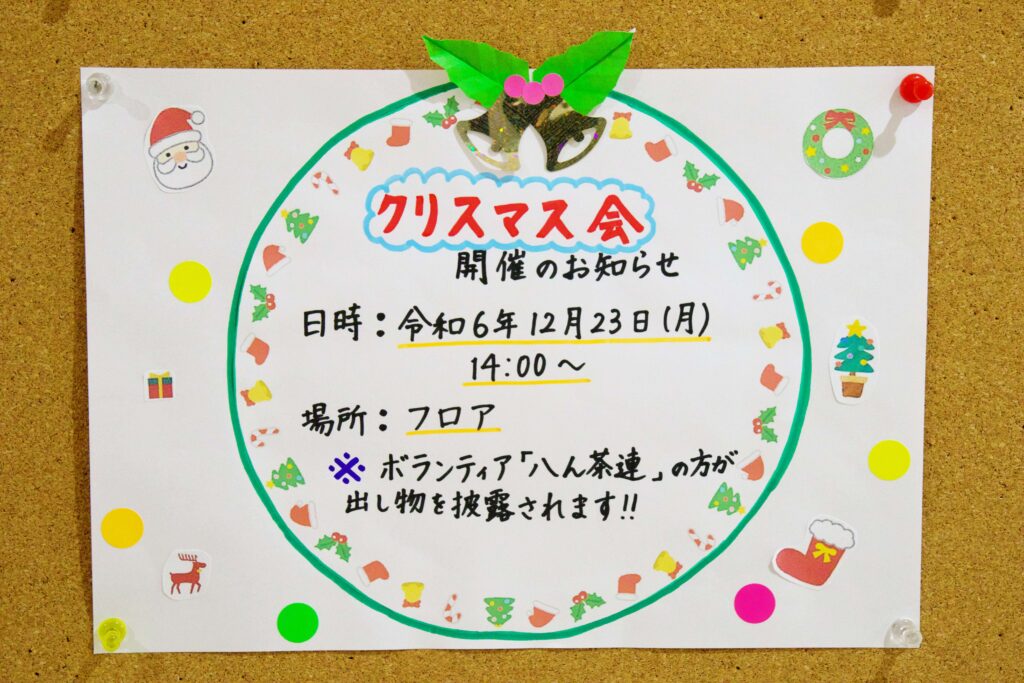 クリスマス会
開催のお知らせ
日時：令和6年12月23日(月)
14:00～
場所：フロア
※ ボランティア「八ん茶連」の方が
出し物を披露されます!!